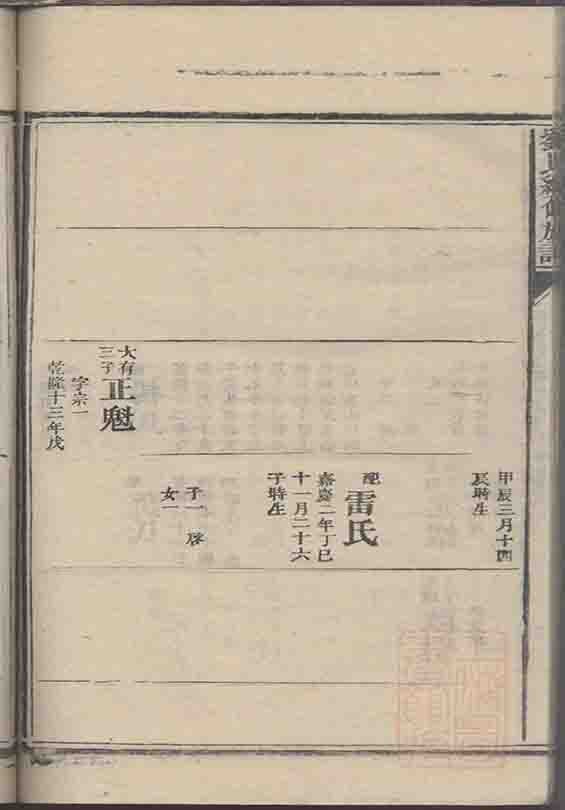 甲辰三月十四
辰時生
配
雷氏
嘉慶二年丁巳
十一月二十六
子時生
子一 啓
女一
大有
三子
正魁
字宗一
乾隆十三年戊